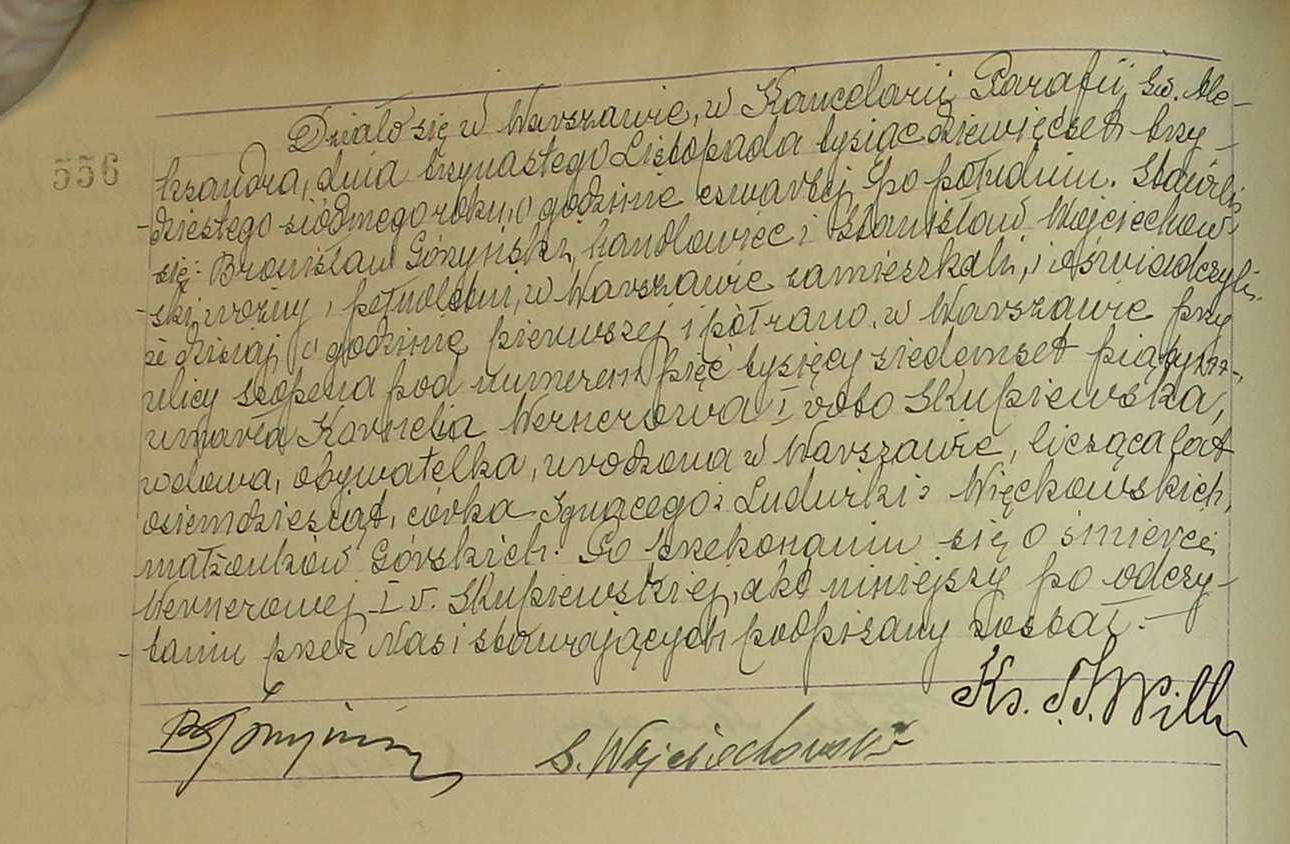 556
Działo się w Warszawie, w Kancelarii Parafii Św. Ale-
ksandra, dnia trzynastego Listopada tysiąc dziewięćset trzy-
-dziestego siódmego roku, o godzinie czwartej po południu. Stawili
się: Bronisław Górzyński, handlowiec i Stanisław Wojciechow-
-ski, woźny, pełnoletni, w Warszawie zamieszkali, i oświadczyli,
że dzisiaj o godzinie pierwszej i pół rano, w Warszawie przy
ulicy Szopena pod numerem pięć tysięcy siedemset piątym,
umarła Kornelia Wernerowa I voto Skupiewska,
wdowa, obywatelka, urodzona w Warszawie, licząca lat
osiemdziesiąt, córka Ignacego i Ludwiki z Więckowskich,
małżonków Górskich. Po przekonaniu się o śmierci
Wernerowej I v. Skupiewskiej, akt niniejszy po odczy-
-taniu przez Nas i stawających podpisany został.-
Ks.
S. Wojciechowski